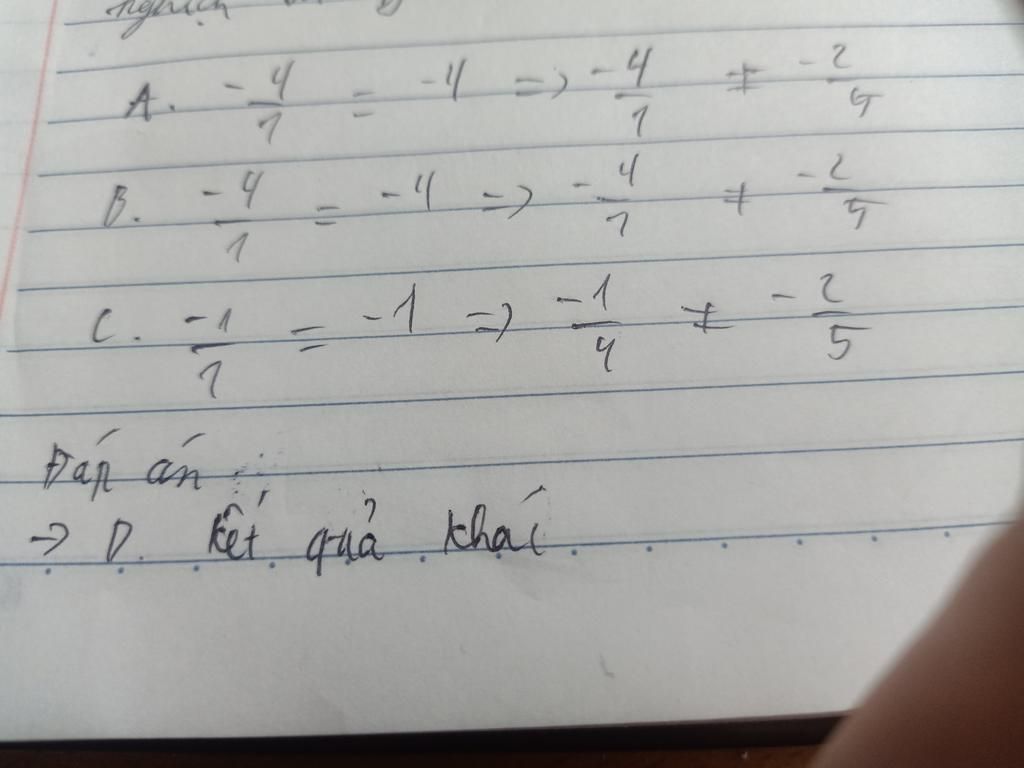 A. -4/1 = -4 => -4/1 ≠ -2/5
B. -4/1 = -4 => -4/1 ≠ -2/5
C. -1/1 = -1 => -1/4 ≠ -2/5
Đáp án :
-> D. Kết quả khác